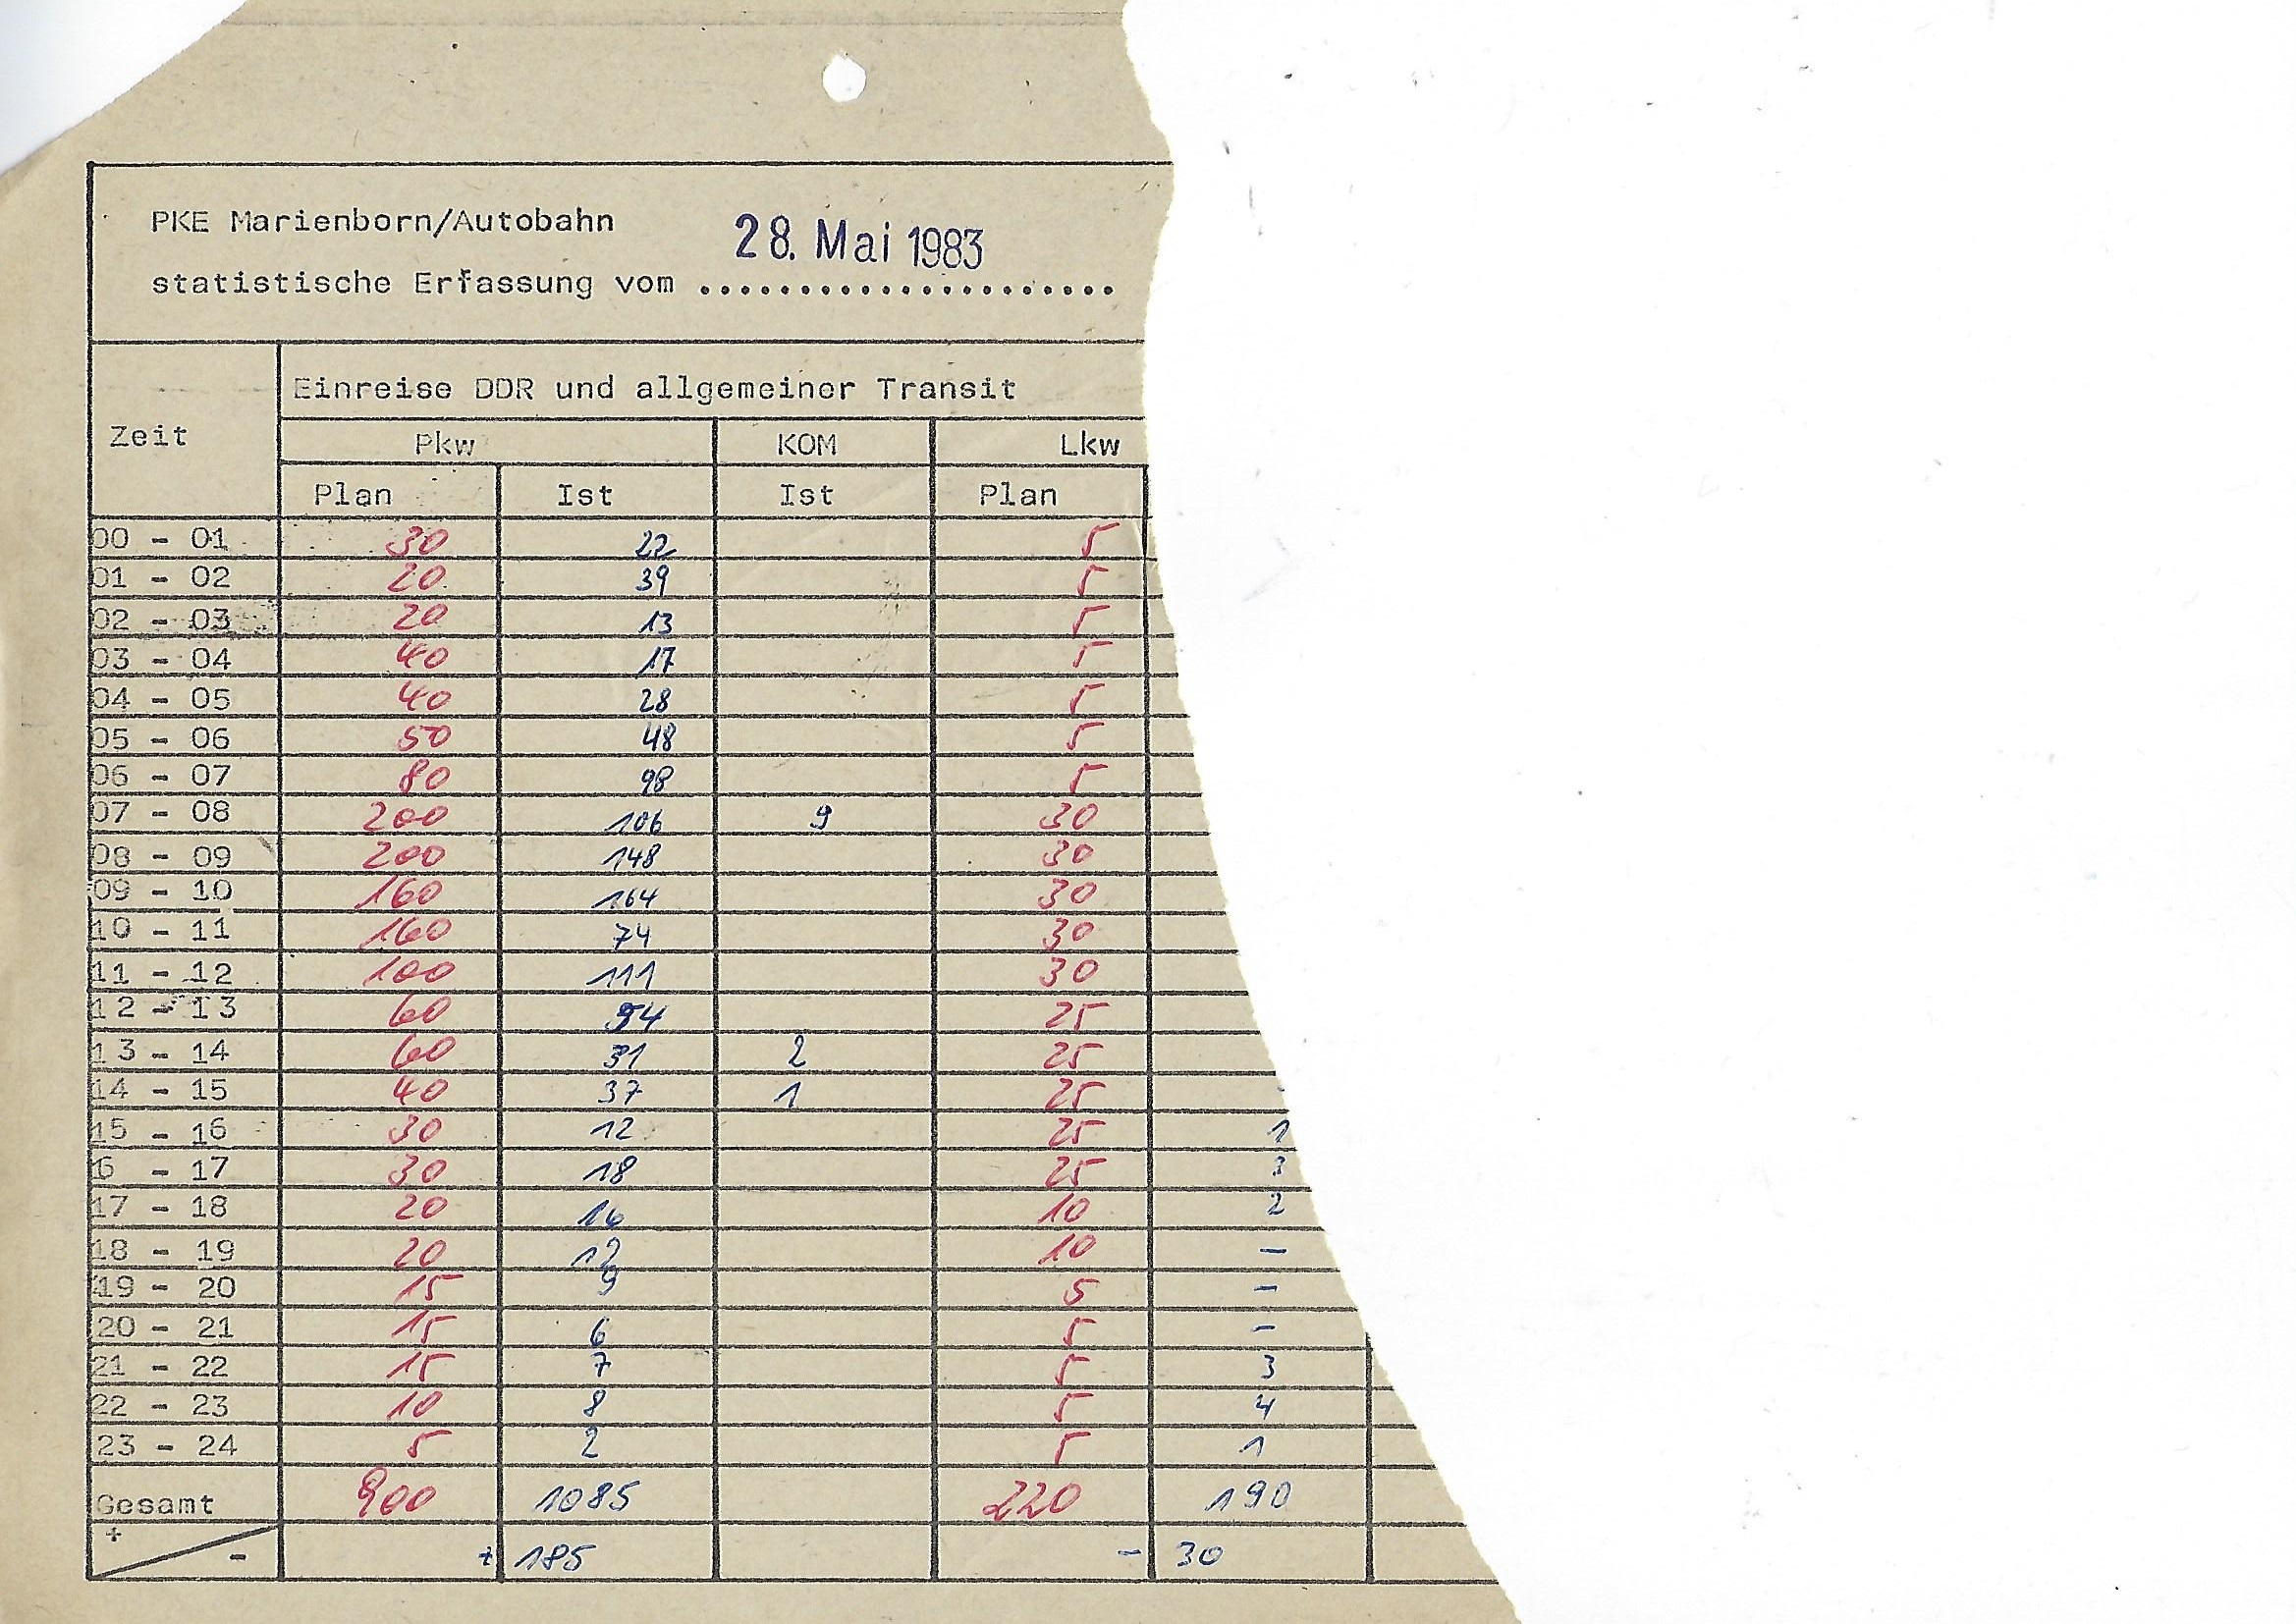 PKE Marienborn/Autobahn
28. Mai 1983
statistische Erfassung vom .....................
Zeit
Einreise DDR und allgemeiner Transit
Pkw KOM Lkw
Plan Ist Ist Plan
00 - 01 30 22 5
01 - 02 20 39 5
02 - 03 20 13 5
03 - 04 40 17 5
04 - 05 40 28 5
05 - 06 50 48 5
06 - 07 80 98 5
07 - 08 200 106 9 30
08 - 09 200 148 30
09 - 10 160 164 30
10 - 11 160 74 30
11 - 12 100 111 30
12 - 13 60 25
13 - 14 60 31 2 25
14 - 15 40 37 1 25
15 - 16 30 12 25 1
6 - 17 30 18 25 3
17 - 18 20 16 10 2
18 - 19 20 12 10 -
19 - 20 15 9 5 -
20 - 21 15 6 5 -
21 - 22 15 7 5 3
22 - 23 10 8 5 4
23 - 24 5 2 5 1
Gesamt 900 1085 220 190
+ - + 185 - 30